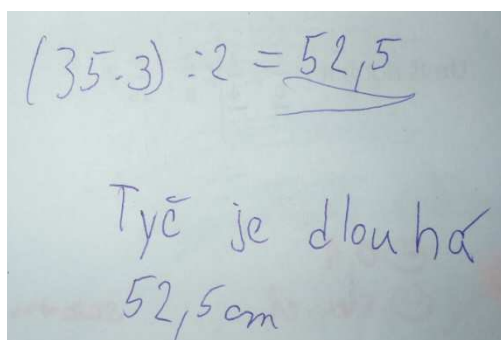 (35·3) ÷ 2 = 52,5
Tyč je dlouhá
52,5 cm